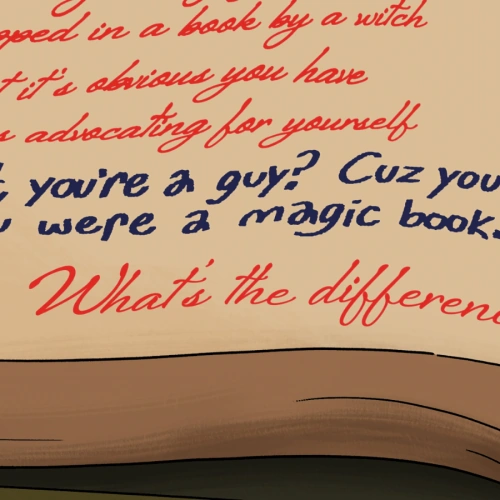 in a book by a witch
it's obvious you have
advocating for yourself
you're a guy? Cuz you
were a magic book.
What's the